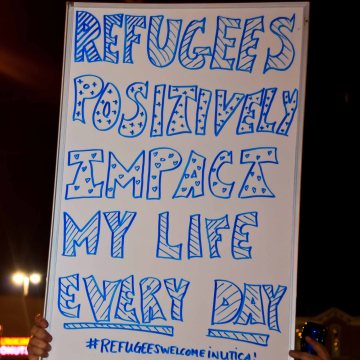 REFUGEES
POSITIVELY
IMPACT
MY LIFE
EVERY DAY
#REFUGEESWELCOMEINUTICA!